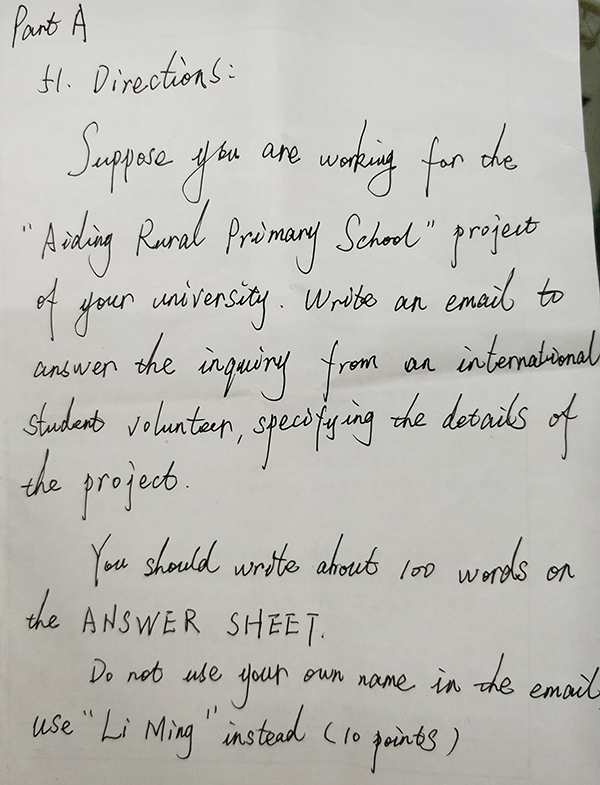 Part A
51. Directions:
Suppose you are working for the
"Aiding Rural Primary School" project
of your university. Write an email to
answer the inquiry from an international
student volunteer, specifying the details of
the project.
You should write about 100 words on
the ANSWER SHEET.
Do not use your own name in the email,
use "Li Ming" instead (10 points)